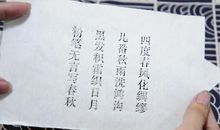 四度春风化绸缪
几番秋雨洗鸿沟
黑发积霜织日月
粉笔无言写春秋